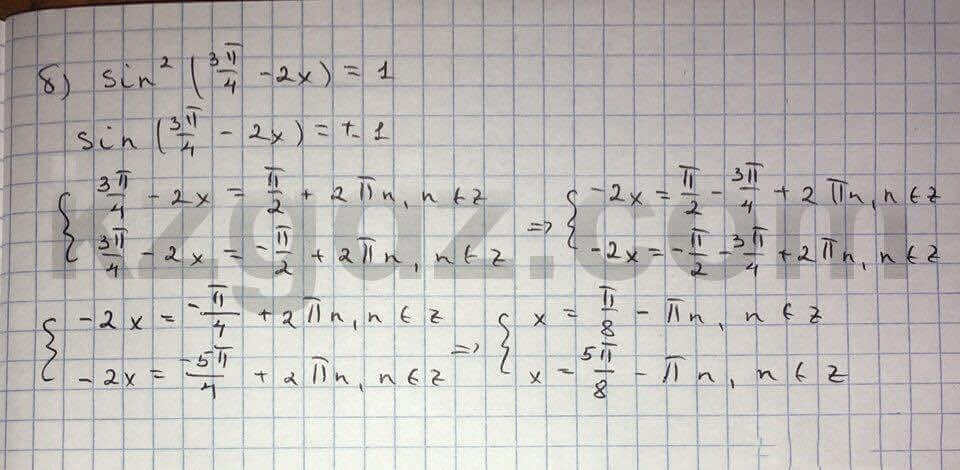 б) sin² (3π/4 - 2x) = 1
sin (3π/4 - 2x) = +- 1
{ 3π/4 - 2x = π/2 + 2πn, n ∈ z
3π/4 - 2x = -π/2 + 2πn, n ∈ z
=> { -2x = π/2 - 3π/4 + 2πn, n ∈ z
-2x = -π/2 - 3π/4 + 2πn, n ∈ z
{ -2x = -π/4 + 2πn, n ∈ z
-2x = -5π/4 + 2πn, n ∈ z
=> { x = π/8 - πn, n ∈ z
x = 5π/8 - πn, n ∈ z
kzgdz.com